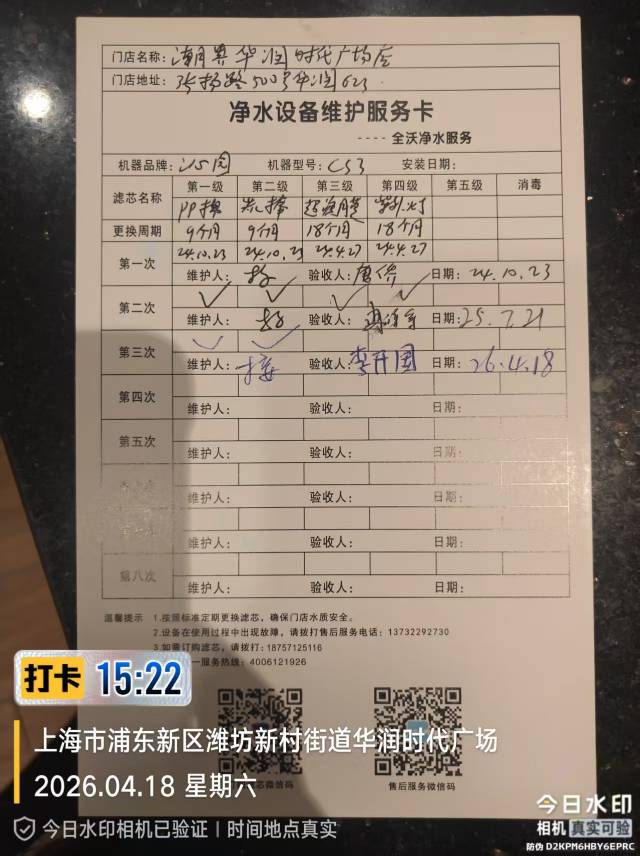 门店名称: 潮界华润时代广场店
门店地址: 张杨路500号华润623
净水设备维护服务卡
---- 全沃净水服务
机器品牌: 机器型号: CS3 安装日期:
滤芯名称 第一级 第二级 第三级 第四级 第五级 消毒
PP棉 炭棒 超滤膜 紫外灯
更换周期 9个月 9个月 18个月 18个月
第一次 24.10.23 24.10.23 24.4.27 24.4.27
维护人: 验收人: 唐侨 日期: 24.10.23
第二次 ✓ ✓ ✓ ✓
维护人: 验收人: 日期: 25.7.21
第三次 ✓ ✓
维护人: 接 验收人: 李开国 日期: 26.4.18
第四次
维护人: 验收人: 日期:
第五次
维护人: 验收人: 日期:
维护人: 验收人:
维护人: 验收人: 日期:
第八次
维护人: 验收人: 日期:
温馨提示 1.按照标准定期更换滤芯，确保门店水质安全。
2.设备在使用过程中出现故障，请拨打售后服务电话: 13732292730
3.如需订购滤芯，请拨打: 18757125116
一服务热线: 4006121926
打卡 15:22
上海市浦东新区潍坊新村街道华润时代广场
2026.04.18 星期六
微信码 售后服务微信码
今日水印相机已验证 | 时间地点真实
今日水印
相机 真实可验
防伪 D2KPM6HBY6EPRC